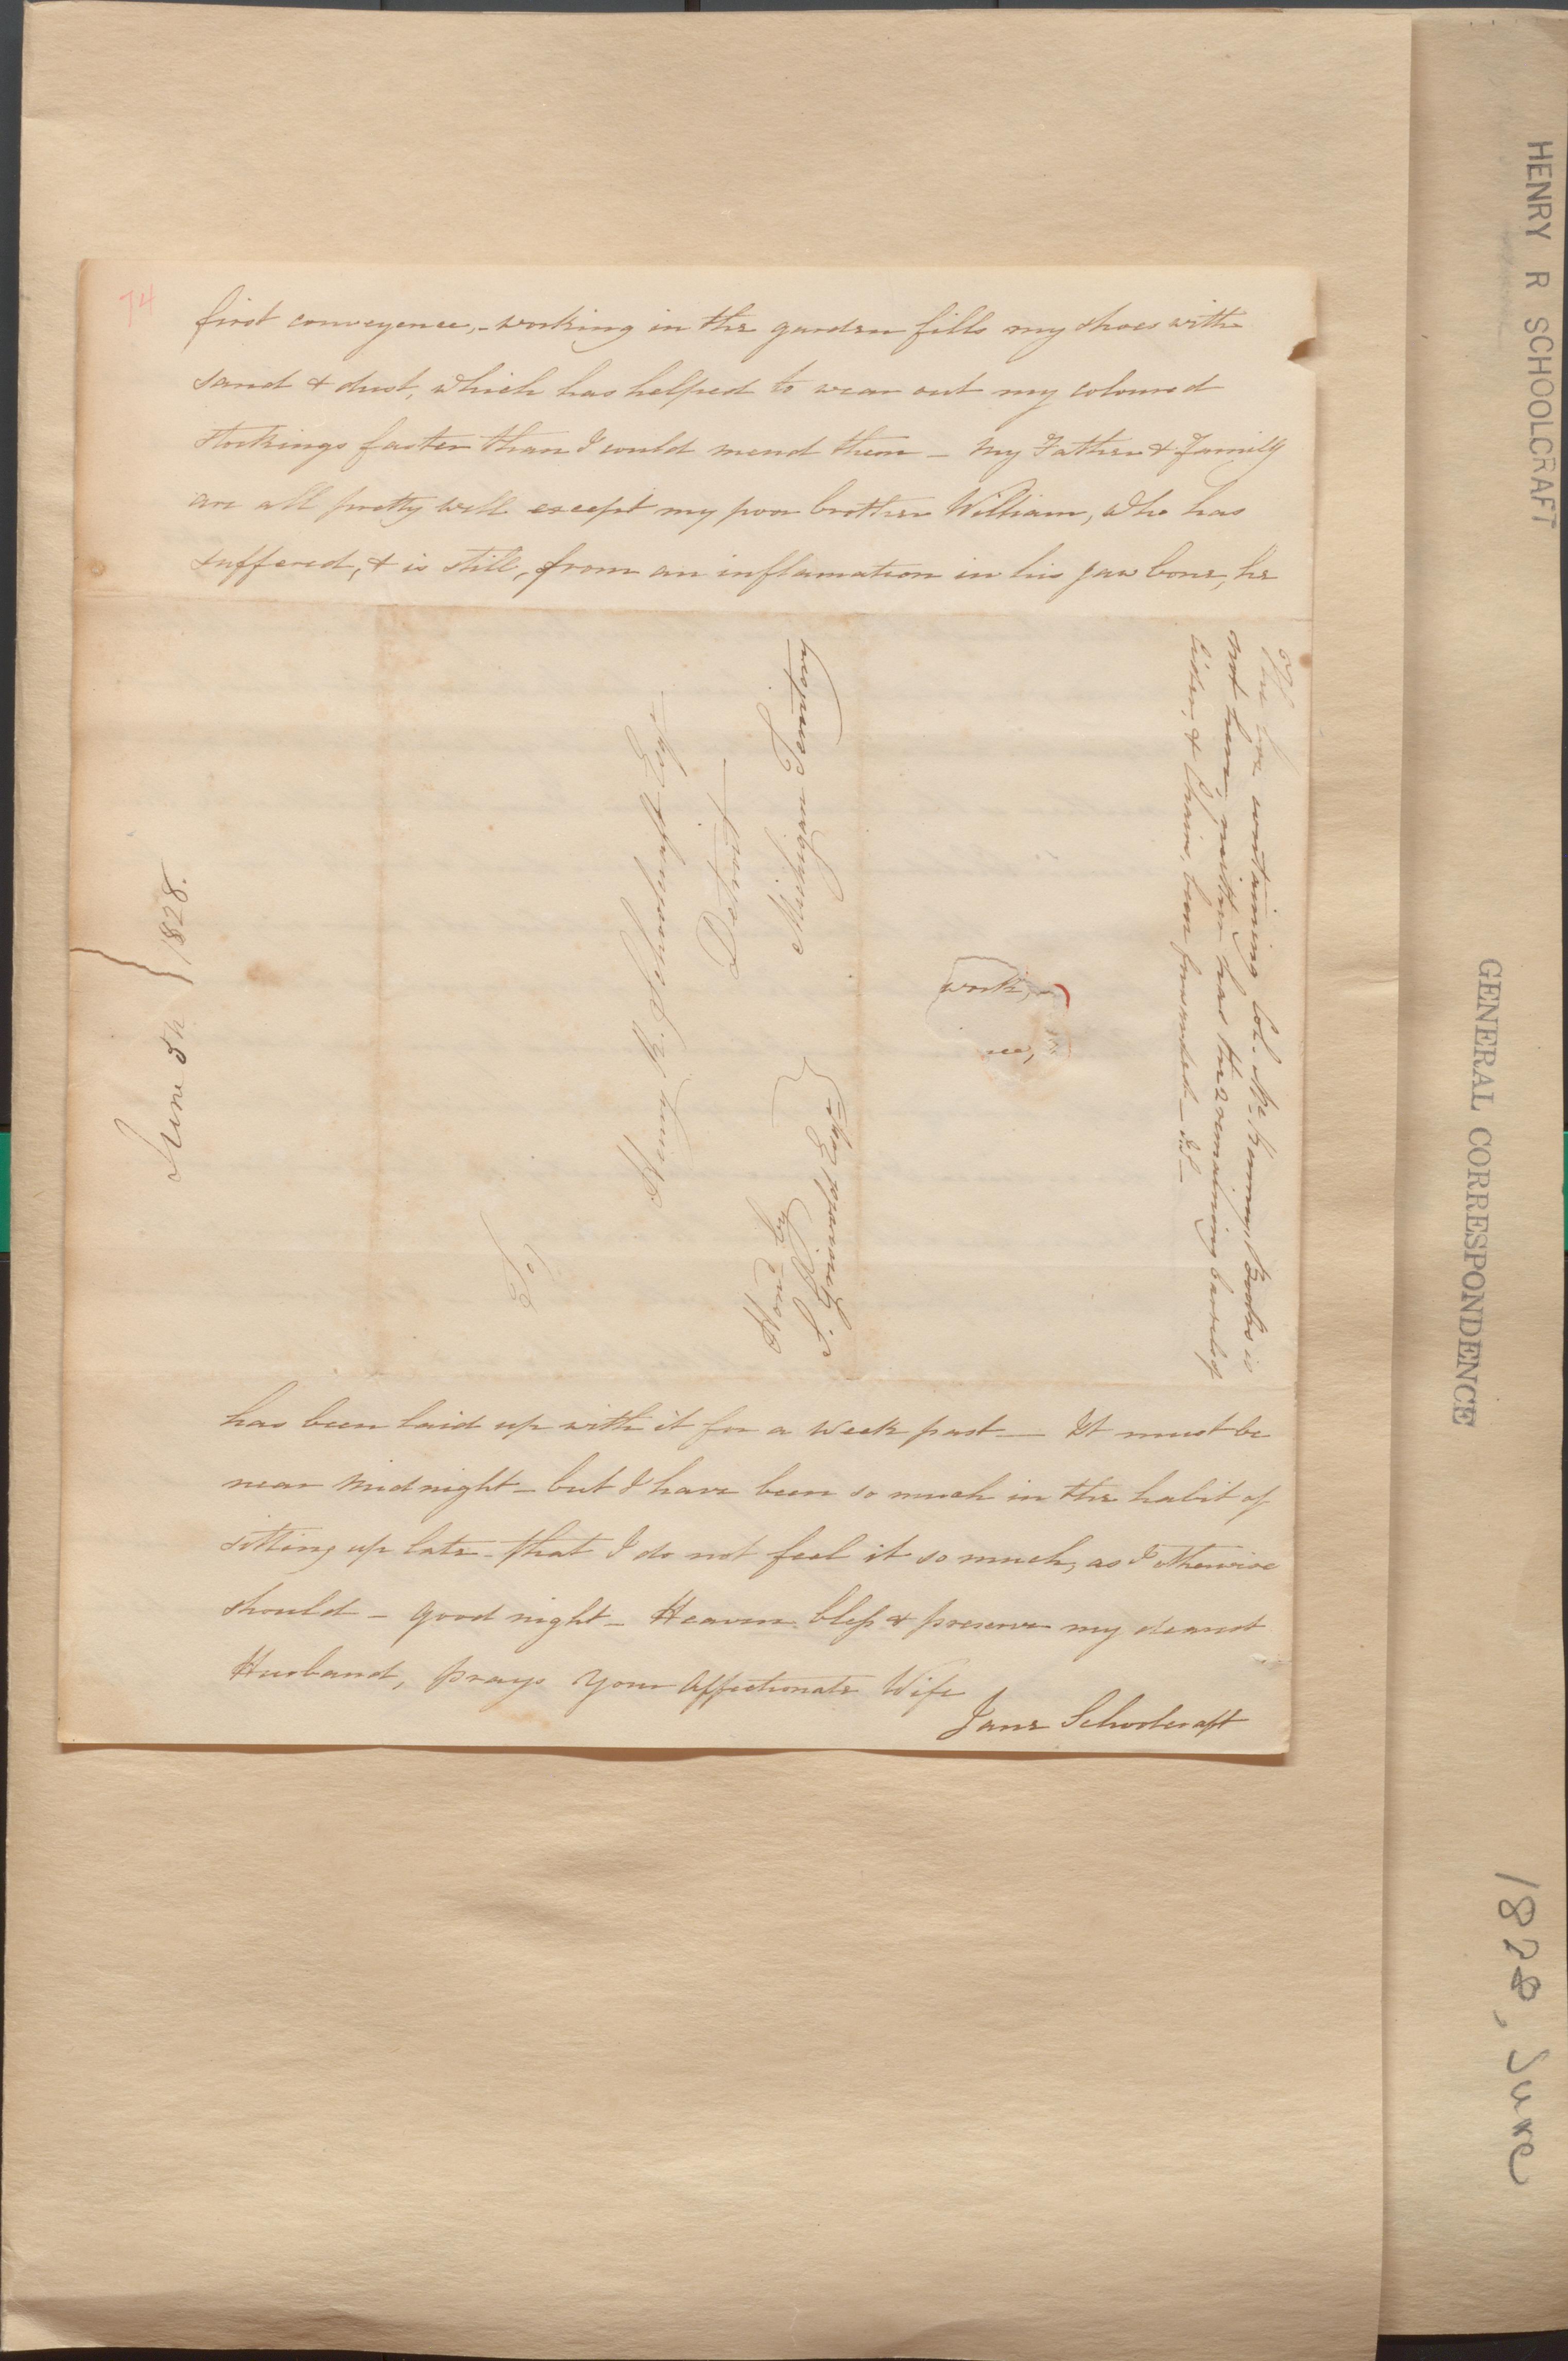 74
first conveyence, - working in the garden fills my shoes with
sand & dust, which has helped to wear out my coloured
stockings faster than I could mend them - my Father & family
are all pretty well except my poor brother William, who has
suffered, & is still, from an inflamation in his jaw bone, he
The box containing Col. McKenney's Books is
not here, neither has the 2 remaining barrels of
Cider, & Chairs, been forwarded - JS -
work,
To
Henry R. Schoolcraft Esqr.
Detroit
Michigan Territory
Hond. by
J. Esqr.
June 5th 1828.
has been laid up with it for a week past - It must be
near midnight - but I have been so much in the habit of
sitting up late - that I do not feel it so much, as I otherwise
should - good night - Heaven bless & preserve my dearest
Husband, prays your affectionate Wife
Jane Schoolcraft
HENRY R SCHOOLCRAFT
GENERAL CORRESPONDENCE
1828, June